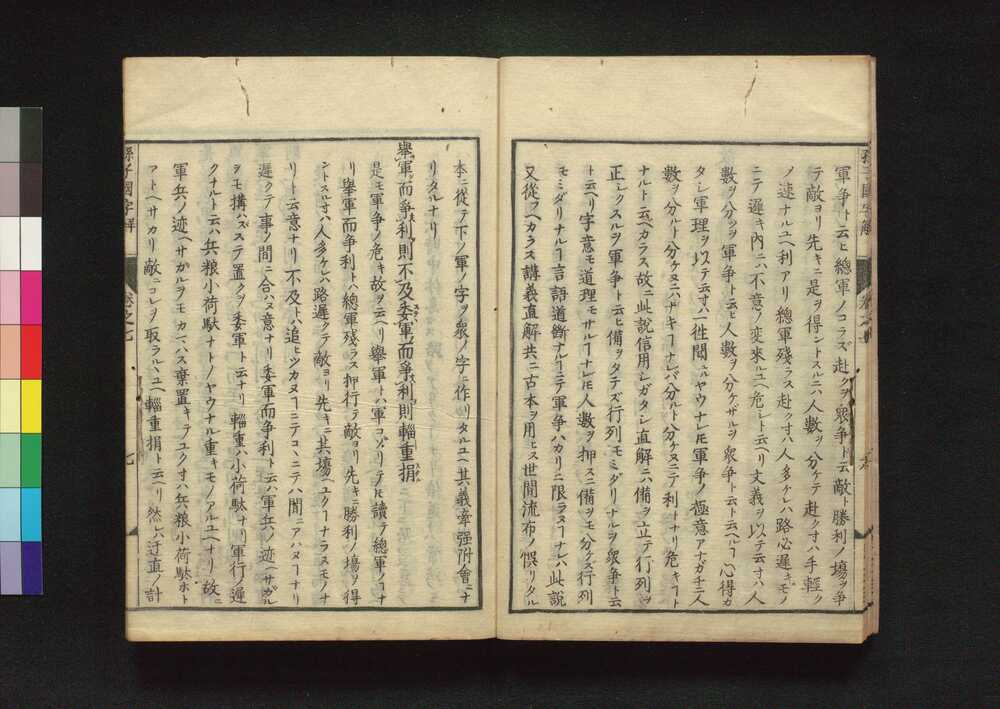 軍争ト云ヒ總軍ノコラズ赴クヲ衆争ト云敵ト勝利ノ塲ヲ争
テ敵ヨリ先キニ是ヲ得ントスルニハ人數ヲ分ケテ赴クオハ手輕ク
ノ速ナルユヘ利アリ總軍殘ラス赴クオハ人多ケレハ路必遲キモノ
ニテ遲キ内ニハ不意ノ変來ルユヘ危シト云ヘリ文義ヲ以テ云オハ人
數ヲ分ツヲ軍争ト云ヒ人數ヲ分ケザルヲ衆争ト云ト云ヘルヿ心得カ
タシ軍理ヲ以テ云オハ一徃聞ユルヤウナレ𪜈軍争ノ極意アナガチニ人
數ヲ分ルト分ケヌニハサキヿナレバ分ルト分ケヌニテ利ナリ危キヿト
ナルト云ベカラス故ニ此説信用シガタシ直解ニハ備ヲ立テ行列ヲ
正シクスルヲ軍争ト云ヒ備ヲタテズ行列モミダリナルヲ衆争ト云
ト云ヘリ字意モ道理モサルヿナレ𪜈人數ヲ押スニ備ヲモ分ケズ行列
モミダリナルヿ言語道斷ナルヿニテ軍争ハカリニ限ラヌヿナレハ此説
又從フヘカラス講義直解共ニ古本ヲ用ヒス世間流布ノ誤リタル
本ニ從テ下ノ軍ノ字ヲ衆ノ字ニ作リタルユヘ其義牽强附會ニナ
リタルナリ
擧軍而爭利則不及委軍而爭利則輜重捐
是モ軍争ノ危キ故ヲ云ヘリ擧軍トハ軍コゾリテト讀テ總軍ノヿナ
リ擧軍而争利トハ總軍殘ラス押行テ敵ヨリ先キニ勝利ノ塲ヲ得
ントスルオハ人多ケレハ路遲クテ敵ヨリ先キニ其塲ヘユクヿナラヌモノナ
リト云意ナリ不及トハ追ヒツカヌヿニテコヽニテハ間ニアハヌヿナリ
遲クテ事ノ間ニ合ハヌ意ナリ委軍而争利トハ軍兵ノ迹ヘサガル
ヲモ搆ハズステ置クヲ委軍ト云ナリ輜重ハ小荷駄ナリ軍行ノ遲
クナルト云ハ兵粮小荷駄ナトノヤウナル重キモノアルユヘナリ故ニ
軍兵ノ迹ヘサガルヲモカマハス棄置キテユクオハ兵粮小荷駄ホト
アトヘサカリ敵ニコレヲ取ラルヽユヘ輜重捐ト云ヘリ然レハ迂直ノ計
孫子國字解
卷之七
七